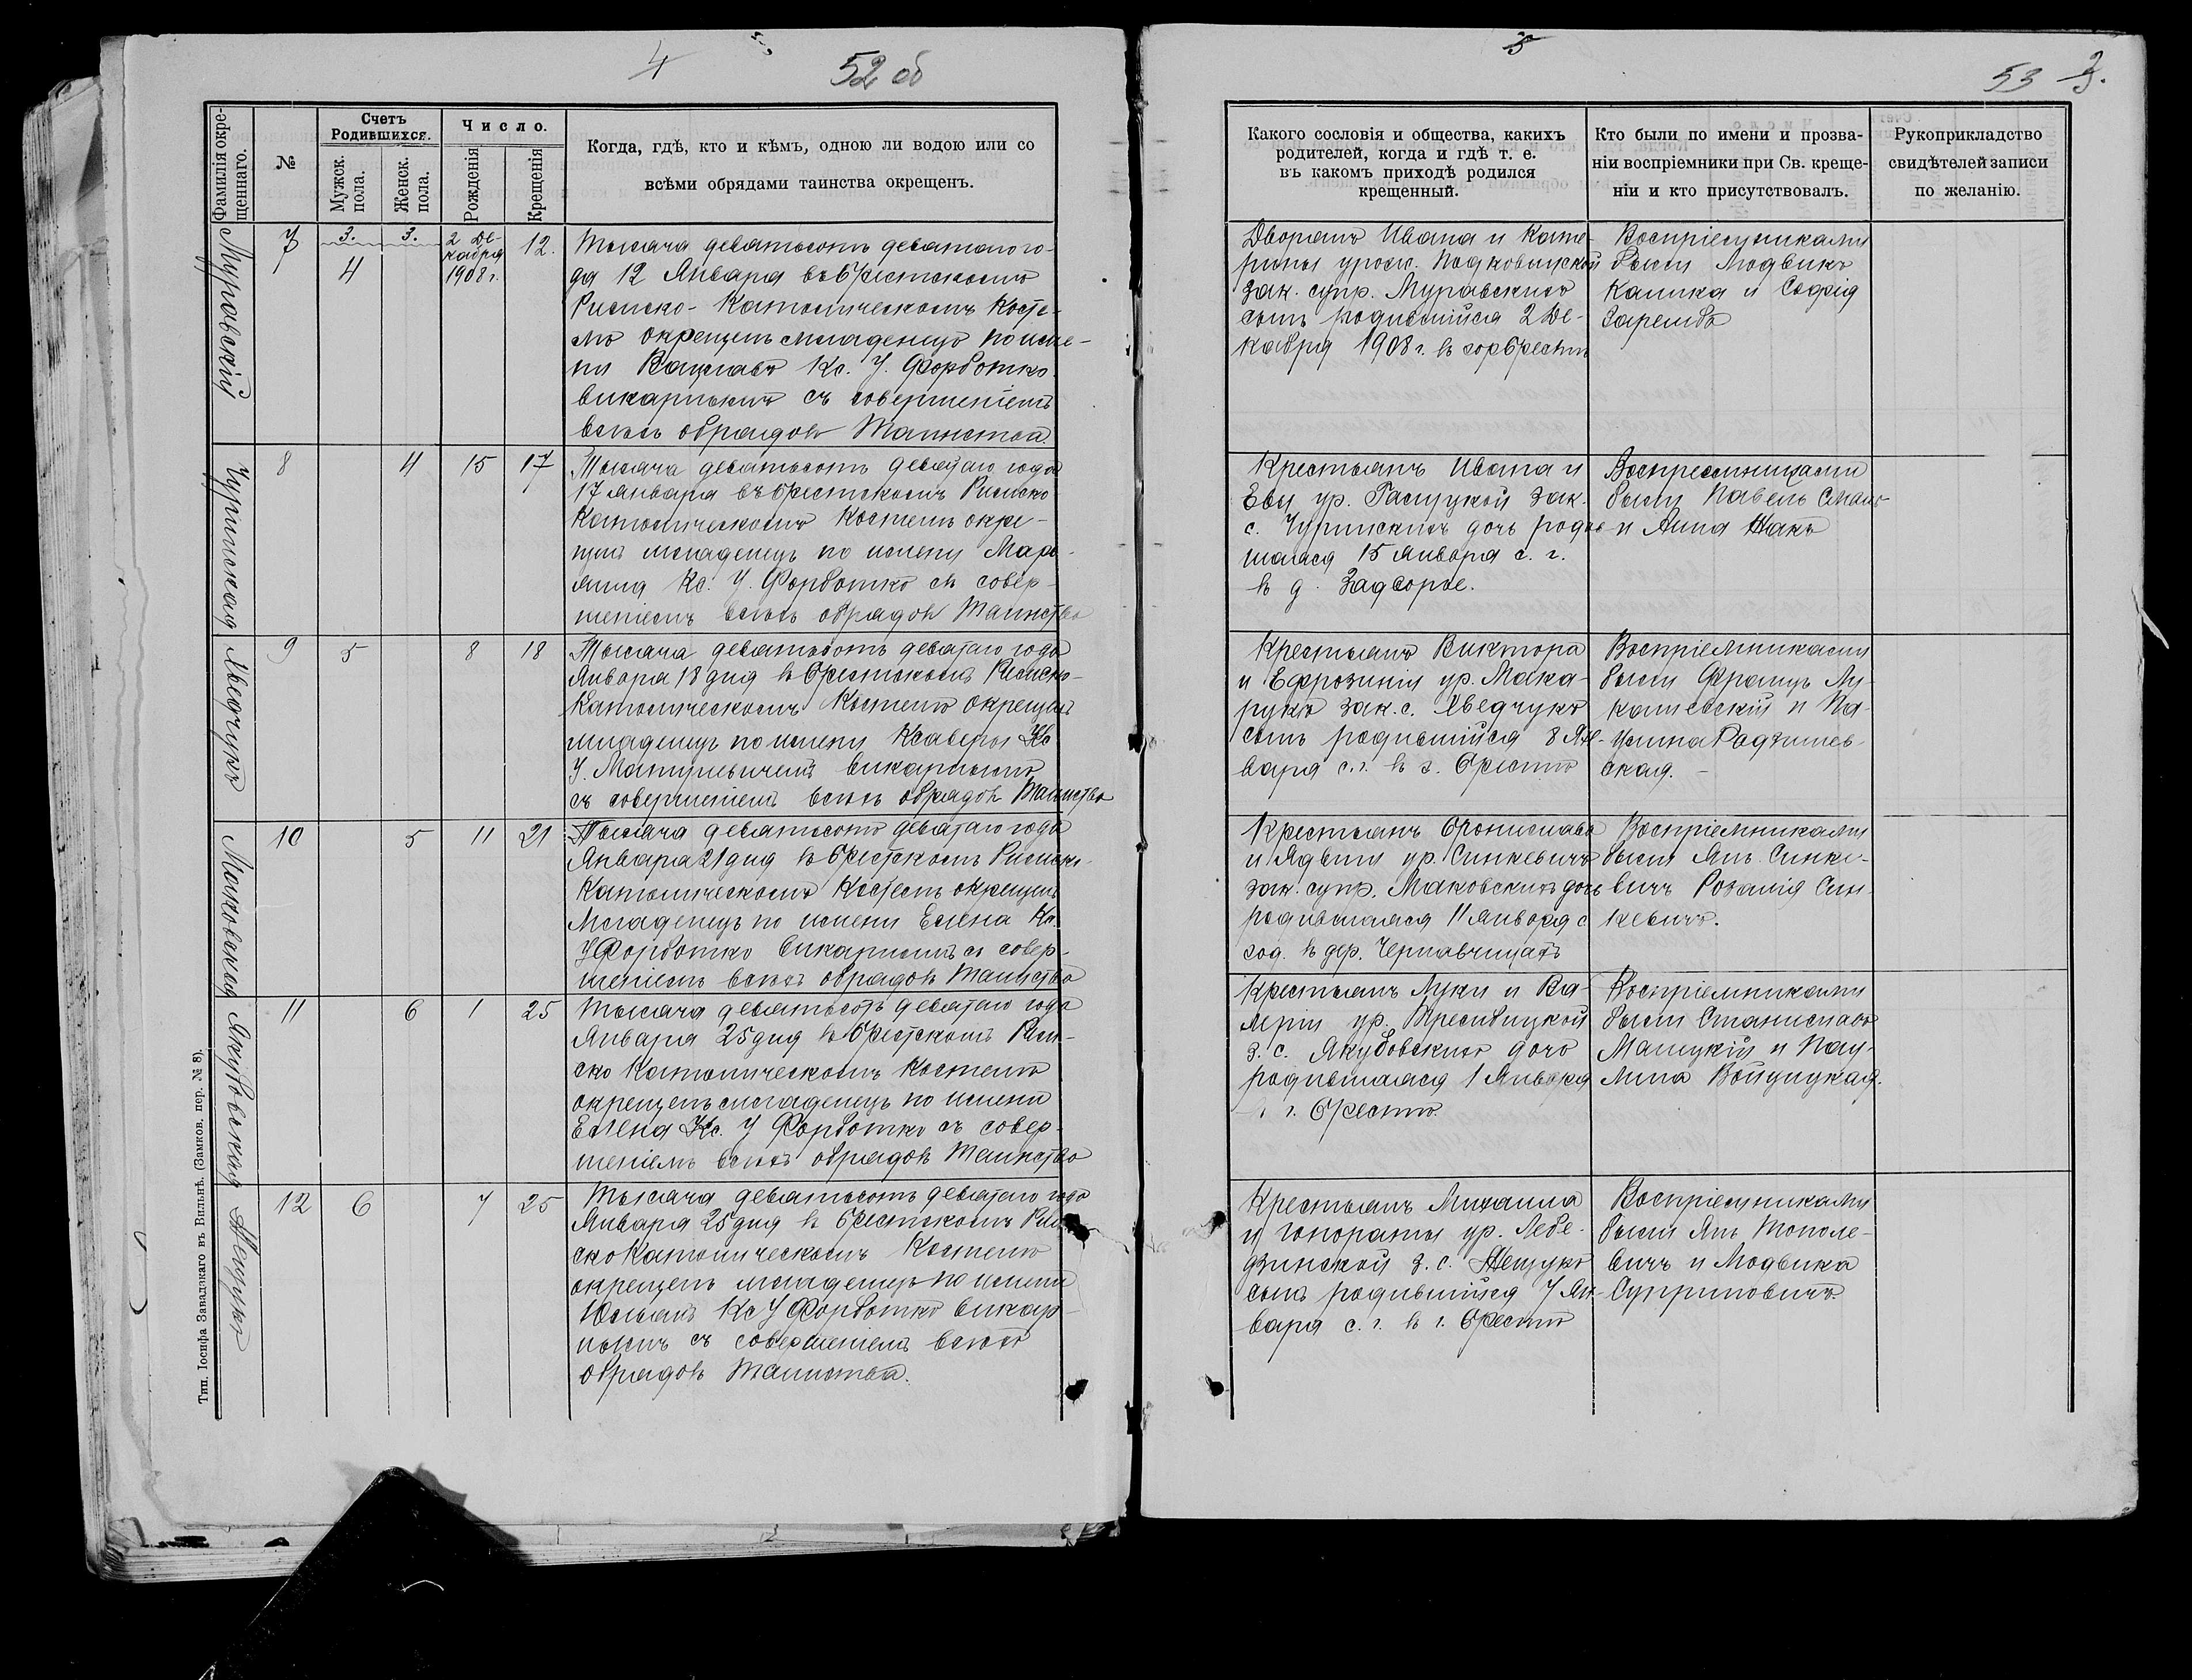 4
52 об
Фамилія окре-
щеннаго.
№
Счетъ
Родившихся.
Мужск.
пола.
Женск.
пола.
Число.
Рожденія
Крещенія
Когда, гдѣ, кто и кѣмъ, одною ли водою или со
всѣми обрядами таинства окрещенъ.
Муровскій
7
3.
3.
4
2 Де-
кабря
1908 г.
12.
Тысяча девятьсотъ девятаго го-
да 12 Января въ Брестскомъ
Римско-Католическомъ Косте-
лѣ окрещенъ младенецъ по име-
ни Вацлавъ Кс. У. Форботко
викарнымъ съ совершеніемъ
всѣхъ обрядовъ Таинства.
8
4
15
17
Тысяча девятьсотъ девятаго года
17 Января въ Брестскомъ Римско
Католическомъ Костелѣ окре-
щенъ младенецъ по имени Марь-
янна Кс. У. Форботко съ совер-
шеніемъ всѣхъ обрядовъ Таинства
Хведчукъ
9
5
8
18
Тысяча девятьсотъ девятаго года
Января 18 дня въ Брестскомъ Римско-
Католическомъ Костелѣ окрещенъ
младенецъ по имени Ксаверы Кс
викарнымъ
съ совершеніемъ всѣхъ обрядовъ Таинства
Маковская
10
5
11
21
Тысяча девятьсотъ девятаго года
Января 21 дня въ Брестскомъ Римско-
Католическомъ Костелѣ окрещенъ
Младенецъ по имени Елена Кс.
У Форботко викарнымъ съ совер-
шеніемъ всѣхъ обрядовъ Таинства
Якубовская
11
6
1
25
Тысяча девятьсотъ девятаго года
Января 25 дня въ Брестскомъ Рим-
ско Католическомъ Костелѣ
окрещенъ младенецъ по имени
Елена Кс. У Форботко съ совер-
шеніемъ всѣхъ обрядовъ Таинства
12
6
7
25
Тысяча девятьсотъ девятаго года
Января 25 дня въ Брестскомъ Рим
ско Католическомъ Костелѣ
окрещенъ младенецъ по имени
Юльянъ Кс У Форботко викар-
нымъ съ совершеніемъ всѣхъ
обрядовъ Таинства.
Тип. Іосифа Завадзкаго въ Вильнѣ. (Замков. пер. № 8).
5
53
3.
Какого сословія и общества, какихъ
родителей, когда и гдѣ т. е.
въ какомъ приходѣ родился
крещенный.
Кто были по имени и прозва-
ніи воспріемники при Св. креще-
ніи и кто присутствовалъ.
Рукоприкладство
свидѣтелей записи
по желанію.
Дворянъ Ивана и Кате-
рины урож.
зак. супр. Муравскихъ
сынъ родившійся 2 Де-
кабря 1908 г. въ гор Брестѣ
Воспріемниками
были Людвикъ
Калика и Софія
Заремба
Крестьянъ Ивана и
Евы ур. зак.
с. дочь родив-
шаяся 15 Января с. г.
въ д. Задворье.
Воспріемниками
были Павелъ
и Анна
Крестьянъ Виктора
и Ефрозиніи ур. Мака-
рукъ зак. с. Хведчукъ
сынъ родившійся 8 Ян-
варя с. г. въ г. Брестѣ
Воспріемниками
были Францъ Лу-
кашевскій и Па-
улина Радзишев-
ская.
Крестьянъ Бронислава
и Ядвиги ур. Синкевичъ
зак. супр. Маковскихъ дочь
родившаяся 11 Января с
год. въ дер. Чернавчицахъ
Воспріемниками
были Янъ Синке-
вичъ Розалія Син-
кевичъ.
Крестьянъ Луки и Ва-
леріи ур.
з. с. Якубовскихъ дочь
родившаяся 1 Января
г. Брестѣ.
Воспріемниками
были Станиславъ
Малицкій и Пау-
лина Войцицкая.
Крестьянъ Михаила
и Гонораты ур. Лебе-
дзинской з. с.
сынъ родившійся 7 Ян-
варя с. г. въ г. Брестѣ
Воспріемниками
были Янъ Тополе-
вичъ и Людвика
Суприновичъ.